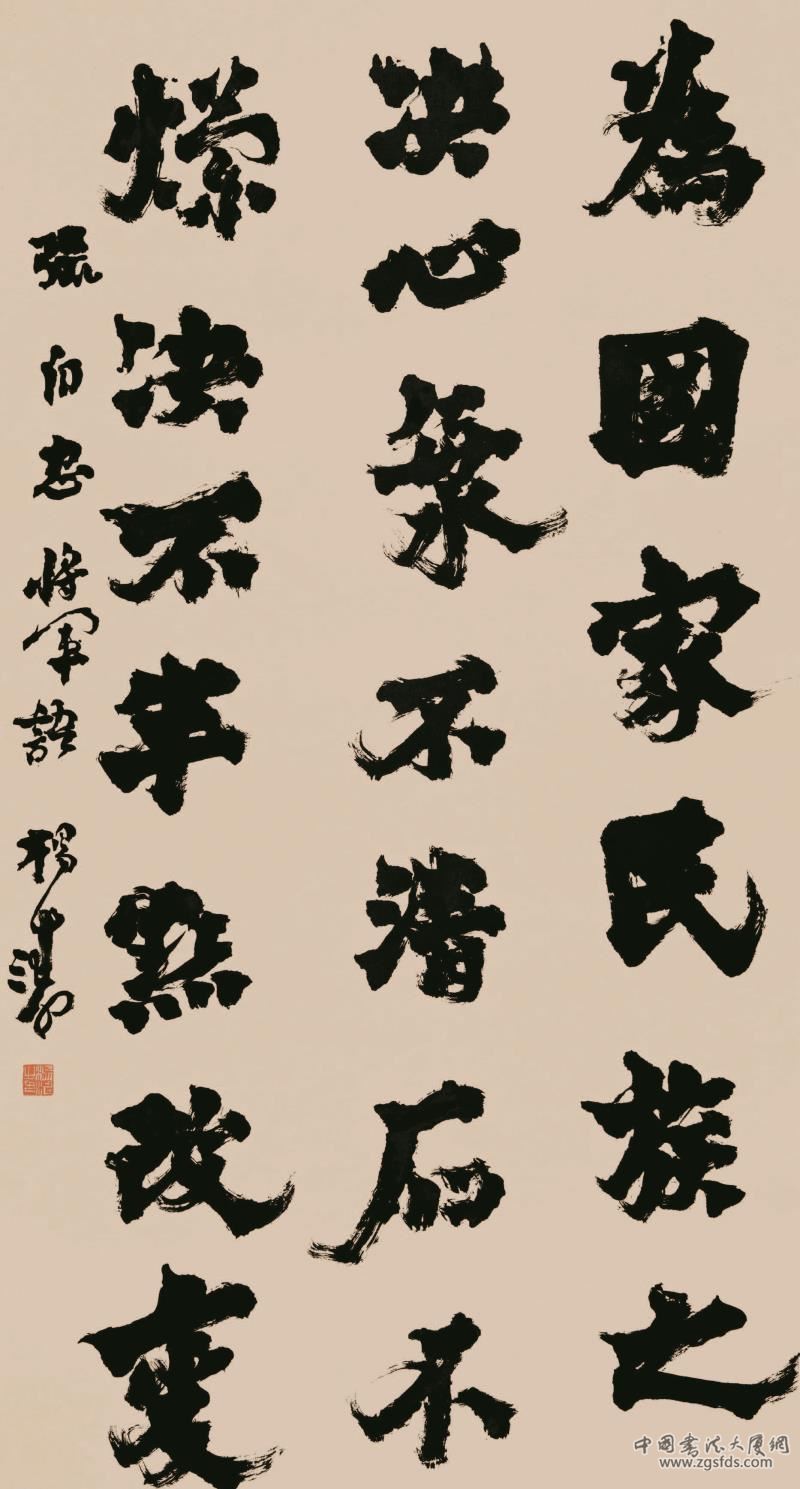 為國家民族之
決心海不清石不
爛決不半點改變
張自忠將軍語 楊
中國書法大廈網
www.zgsfds.com